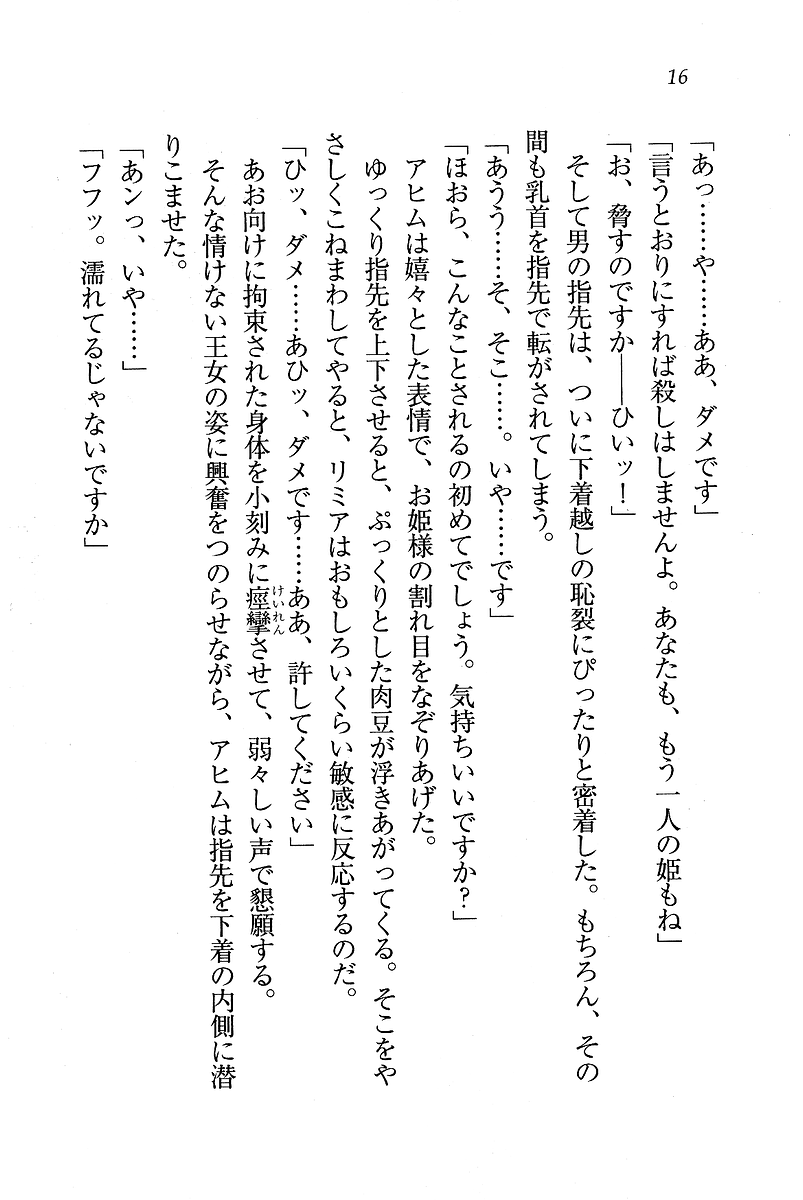 16
「あっ……や……ああ、ダメです」
「言うとおりにすれば殺しはしませんよ。あなたも、もう一人の姫もね」
「お、脅すのですか――ひいッ！」
そして男の指先は、ついに下着越しの恥裂にぴったりと密着した。もちろん、その
間も乳首を指先で転がされてしまう。
「あうう……そ、そこ……。いや……です」
「ほおら、こんなことされるの初めてでしょう。気持ちいいですか？」
アヒムは嬉々とした表情で、お姫様の割れ目をなぞりあげた。
ゆっくり指先を上下させると、ぷっくりとした肉豆が浮きあがってくる。そこをや
さしくこねまわしてやると、リミアはおもしろいくらい敏感に反応するのだ。
「ひッ、ダメ……あひッ、ダメです……ああ、許してください」
あお向けに拘束された身体を小刻みに痙攣けいれんさせて、弱々しい声で懇願する。
そんな情けない王女の姿に興奮をつのらせながら、アヒムは指先を下着の内側に潜
りこませた。
「あンっ、いや……」
「フフッ。濡れてるじゃないですか」